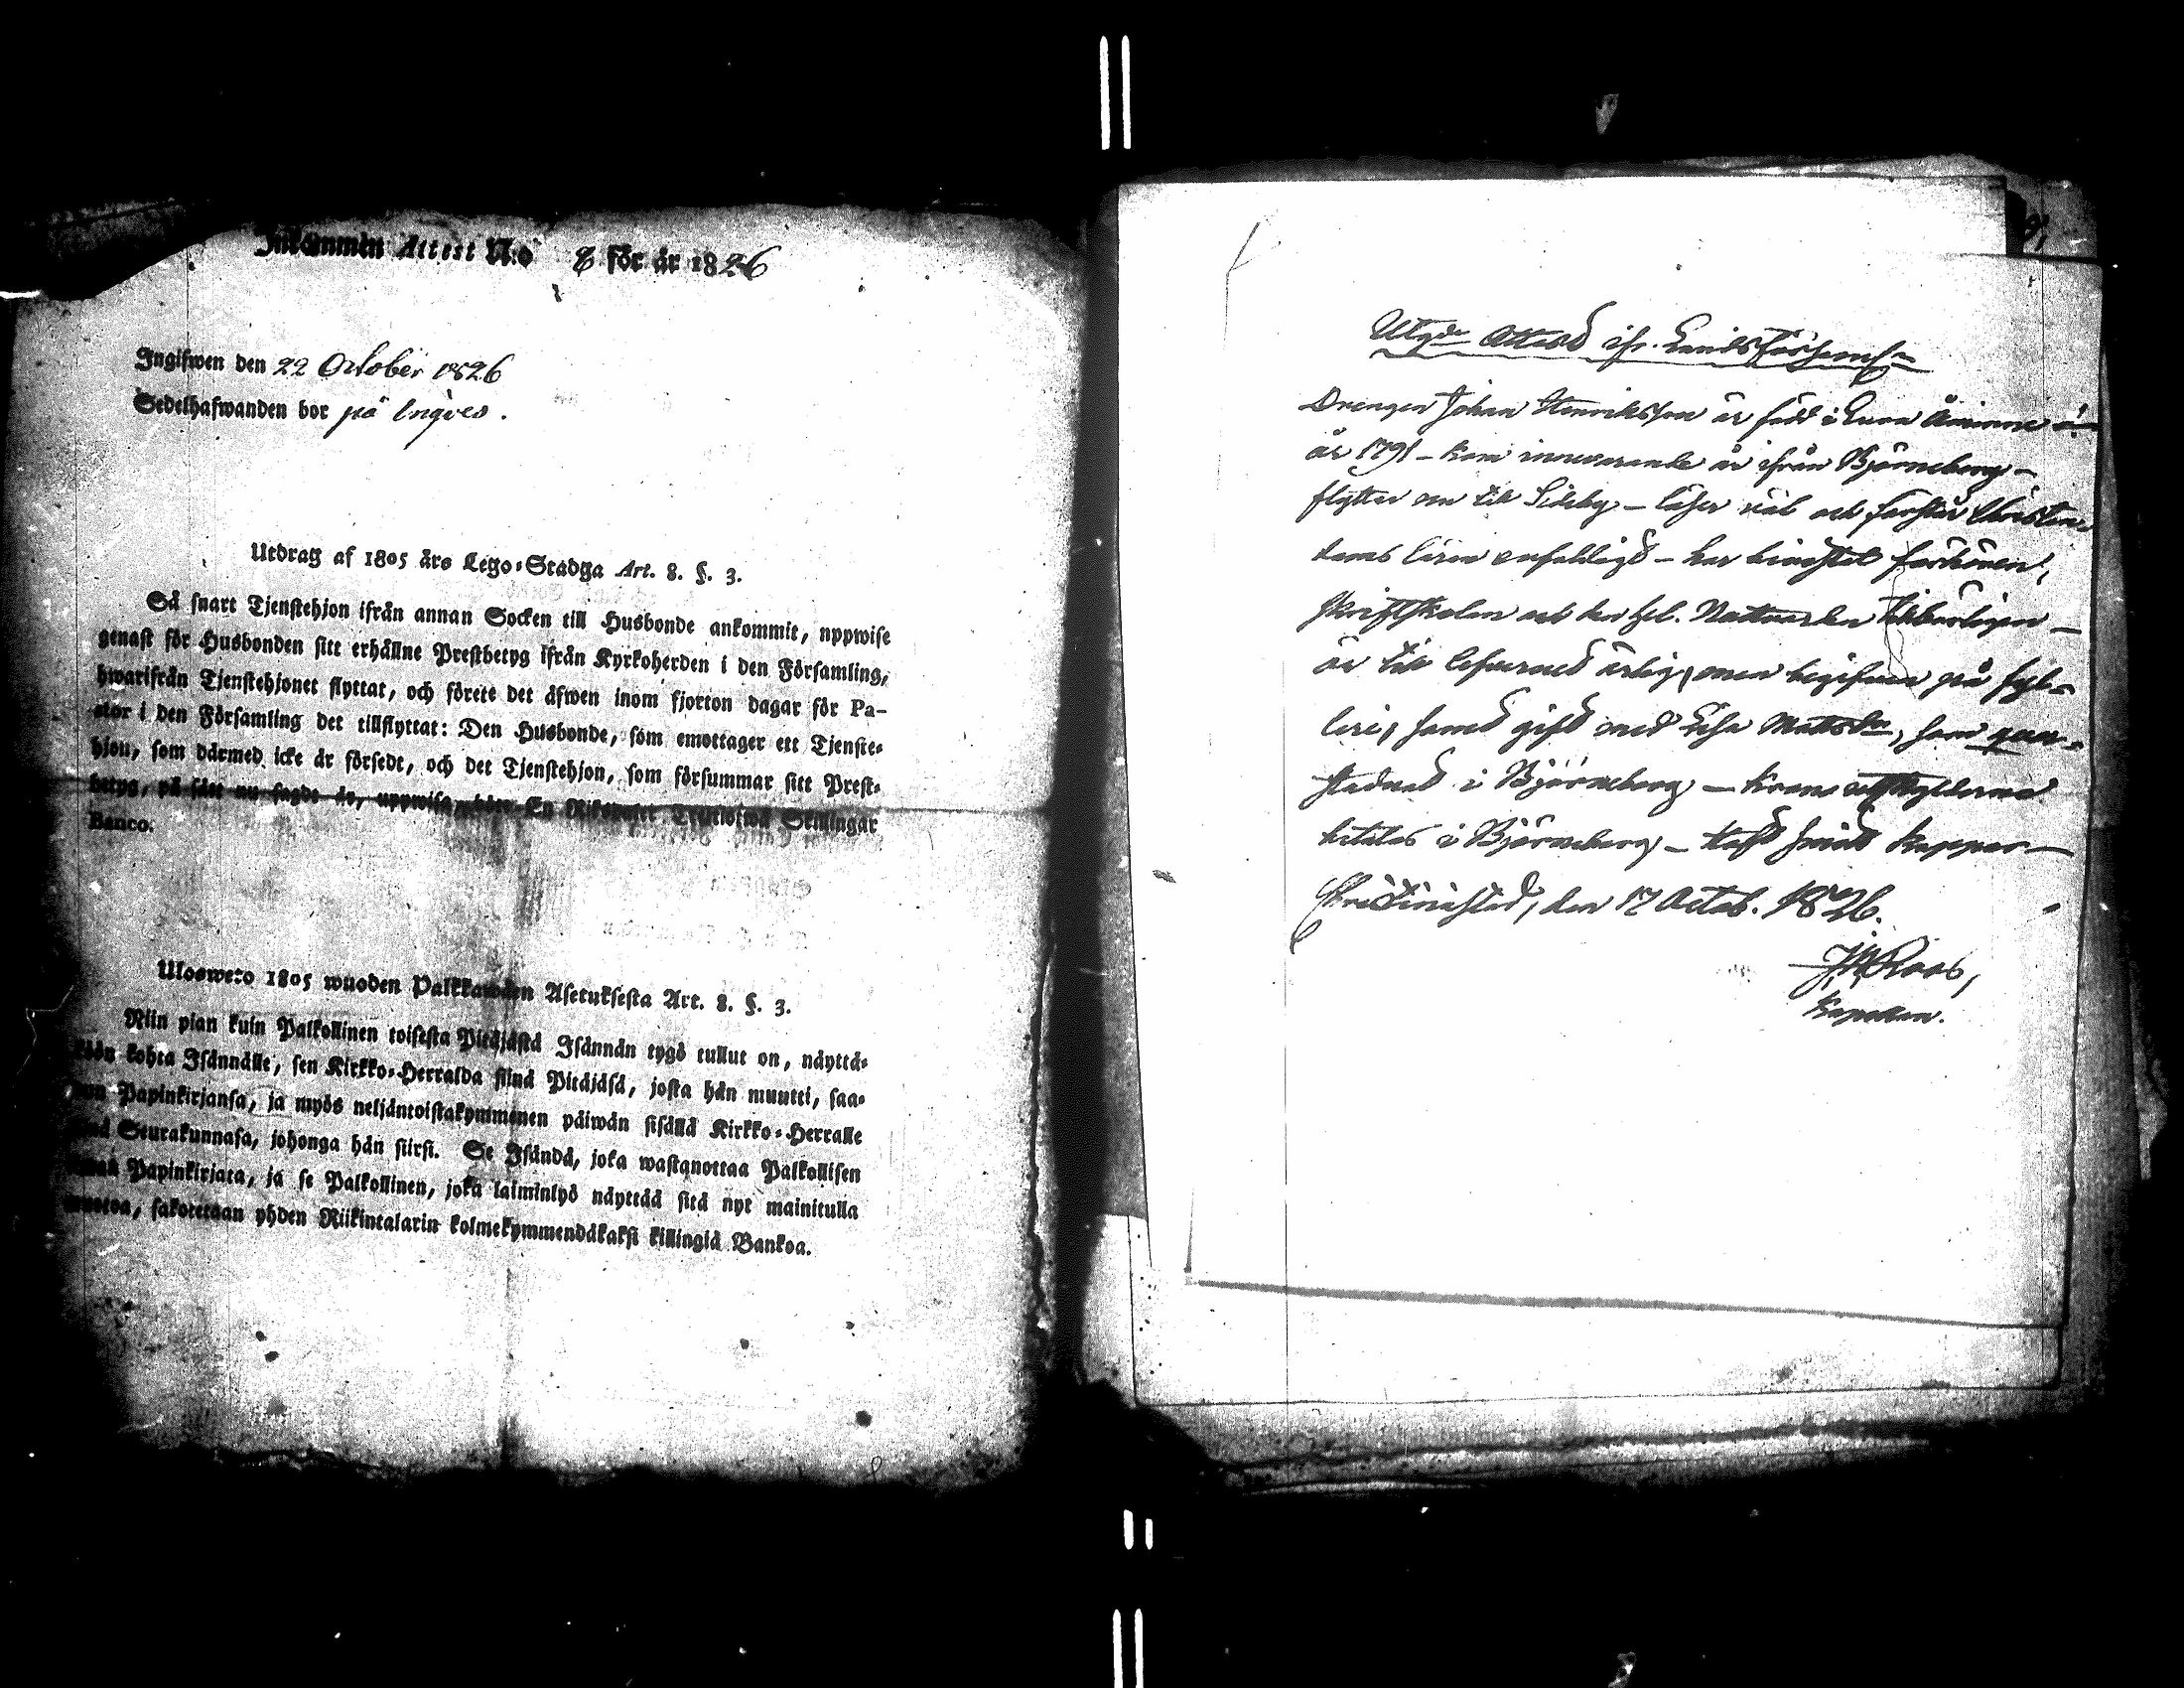 Inkommin Attest N:o 8 för år 1826
Ingifwen den 22 October 1826
Sedelhafwanden bor på Ingves.
Utdrag af 1805 års Lego-Stadga Art. 8. §. 3.
Så snart Tjenstehjon ifrån annan Socken till Husbonde ankommit, uppwise
genast för Husbonden sitt erhållne Prestbetyg ifrån Kyrkoherden i den Församling,
hwarifrån Tjenstehjonet flyttat, och förete det äfwen inom fjorton dagar för Pa-
stor i den Församling det tillflyttat: Den Husbonde, som emottager ett Tjenste-
hjon, som därmed icke är försedt, och det Tjenstehjon, som försummar sitt Prest-
betyg, på sätt nu sagdt är, uppwisa, böte En Riksdaler Trettiotwå Skillingar
Banco.
Ulosweto 1805 wuoden Palkkawäen Asetuksesta Art. 8. §. 3.
Niin pian kuin Palkollinen toisesta Pitäjästä Isännän tygö tullut on, näyttä-
kään kohta Isännälle, sen Kirkko-Herralda siinä Pitäjäsä, josta hän muutti, saa-
dun Papinkirjansa, ja myös neljäntoistakymmenen päiwän sisällä Kirkko-Herralle
siinä Seurakunnasa, johonga hän siirsi. Se Isändä, joka wastanottaa Palkollisen
ilman Papinkirjata, ja se Palkollinen, joka laiminlyö näyttää sitä nyt mainitulla
muotoa, sakotetaan yhden Riikintalarin kolmekymmendäkaksi killingiä Bankoa.
Utgdr Attest ifr. Landsförsamln
Drengen Johan Henriksson är född i Eura
år 1791 – kom innevarande år ifrån Björneberg –
flyttar nu till Sideby – läser väl och förstår Christen-
doms läran enfaldigt – har bivistat förhören,
Skriftskolan och den hel. Nattvarden tillbörligen –
är till lefvernet ärlig, men begifven på fyl-
leri, samt gift med Lisa Mattsdr, som qvar-
stadnat i Björneberg – Krono utskylderna
betalas i Björneberg – haft koppor –
Christinestad, den 17 Octob. 1826.
Roos,
Kapellan.